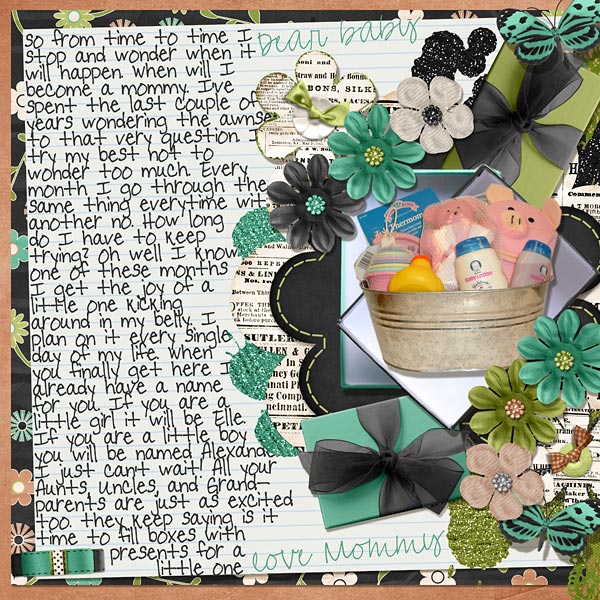 Dear baby
so from time to time I
stop and wonder when it
will happen. when will I
become a mommy. I've
spent the last couple of
years wondering the awnser
to that very question. I
try my best not to
wonder too much. Every
month I go through the
same thing everytime with
another no. How long
do I have to keep
trying? oh well I know
one of these months
I get the joy of a
little one kicking
around in my belly. I
plan on it every single
day of my life. when
you finally get here I
already have a name
for you. If you are a
little girl it will be Elle.
If you are a little boy
you will be named Alexander
I just can't wait! All your
Aunts, uncles, and Grand-
parents are just as excited
too. they keep saying is it
time to fill boxes with
presents for a
little one
love Mommy
BONS, SILK
BABY LOTION
SUTLERS